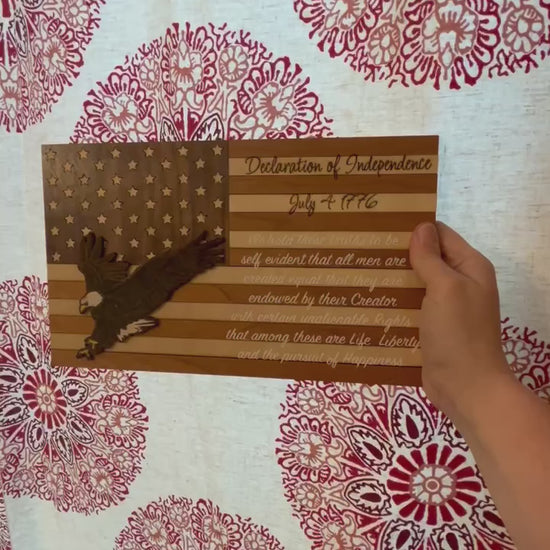 Declaration of Independence
July 4 1776
We hold these truths to be
self evident that all men are
created equal that they are
endowed by their Creator
with certain unalienable Rights
that among these are Life Liberty
and the pursuit of Happiness